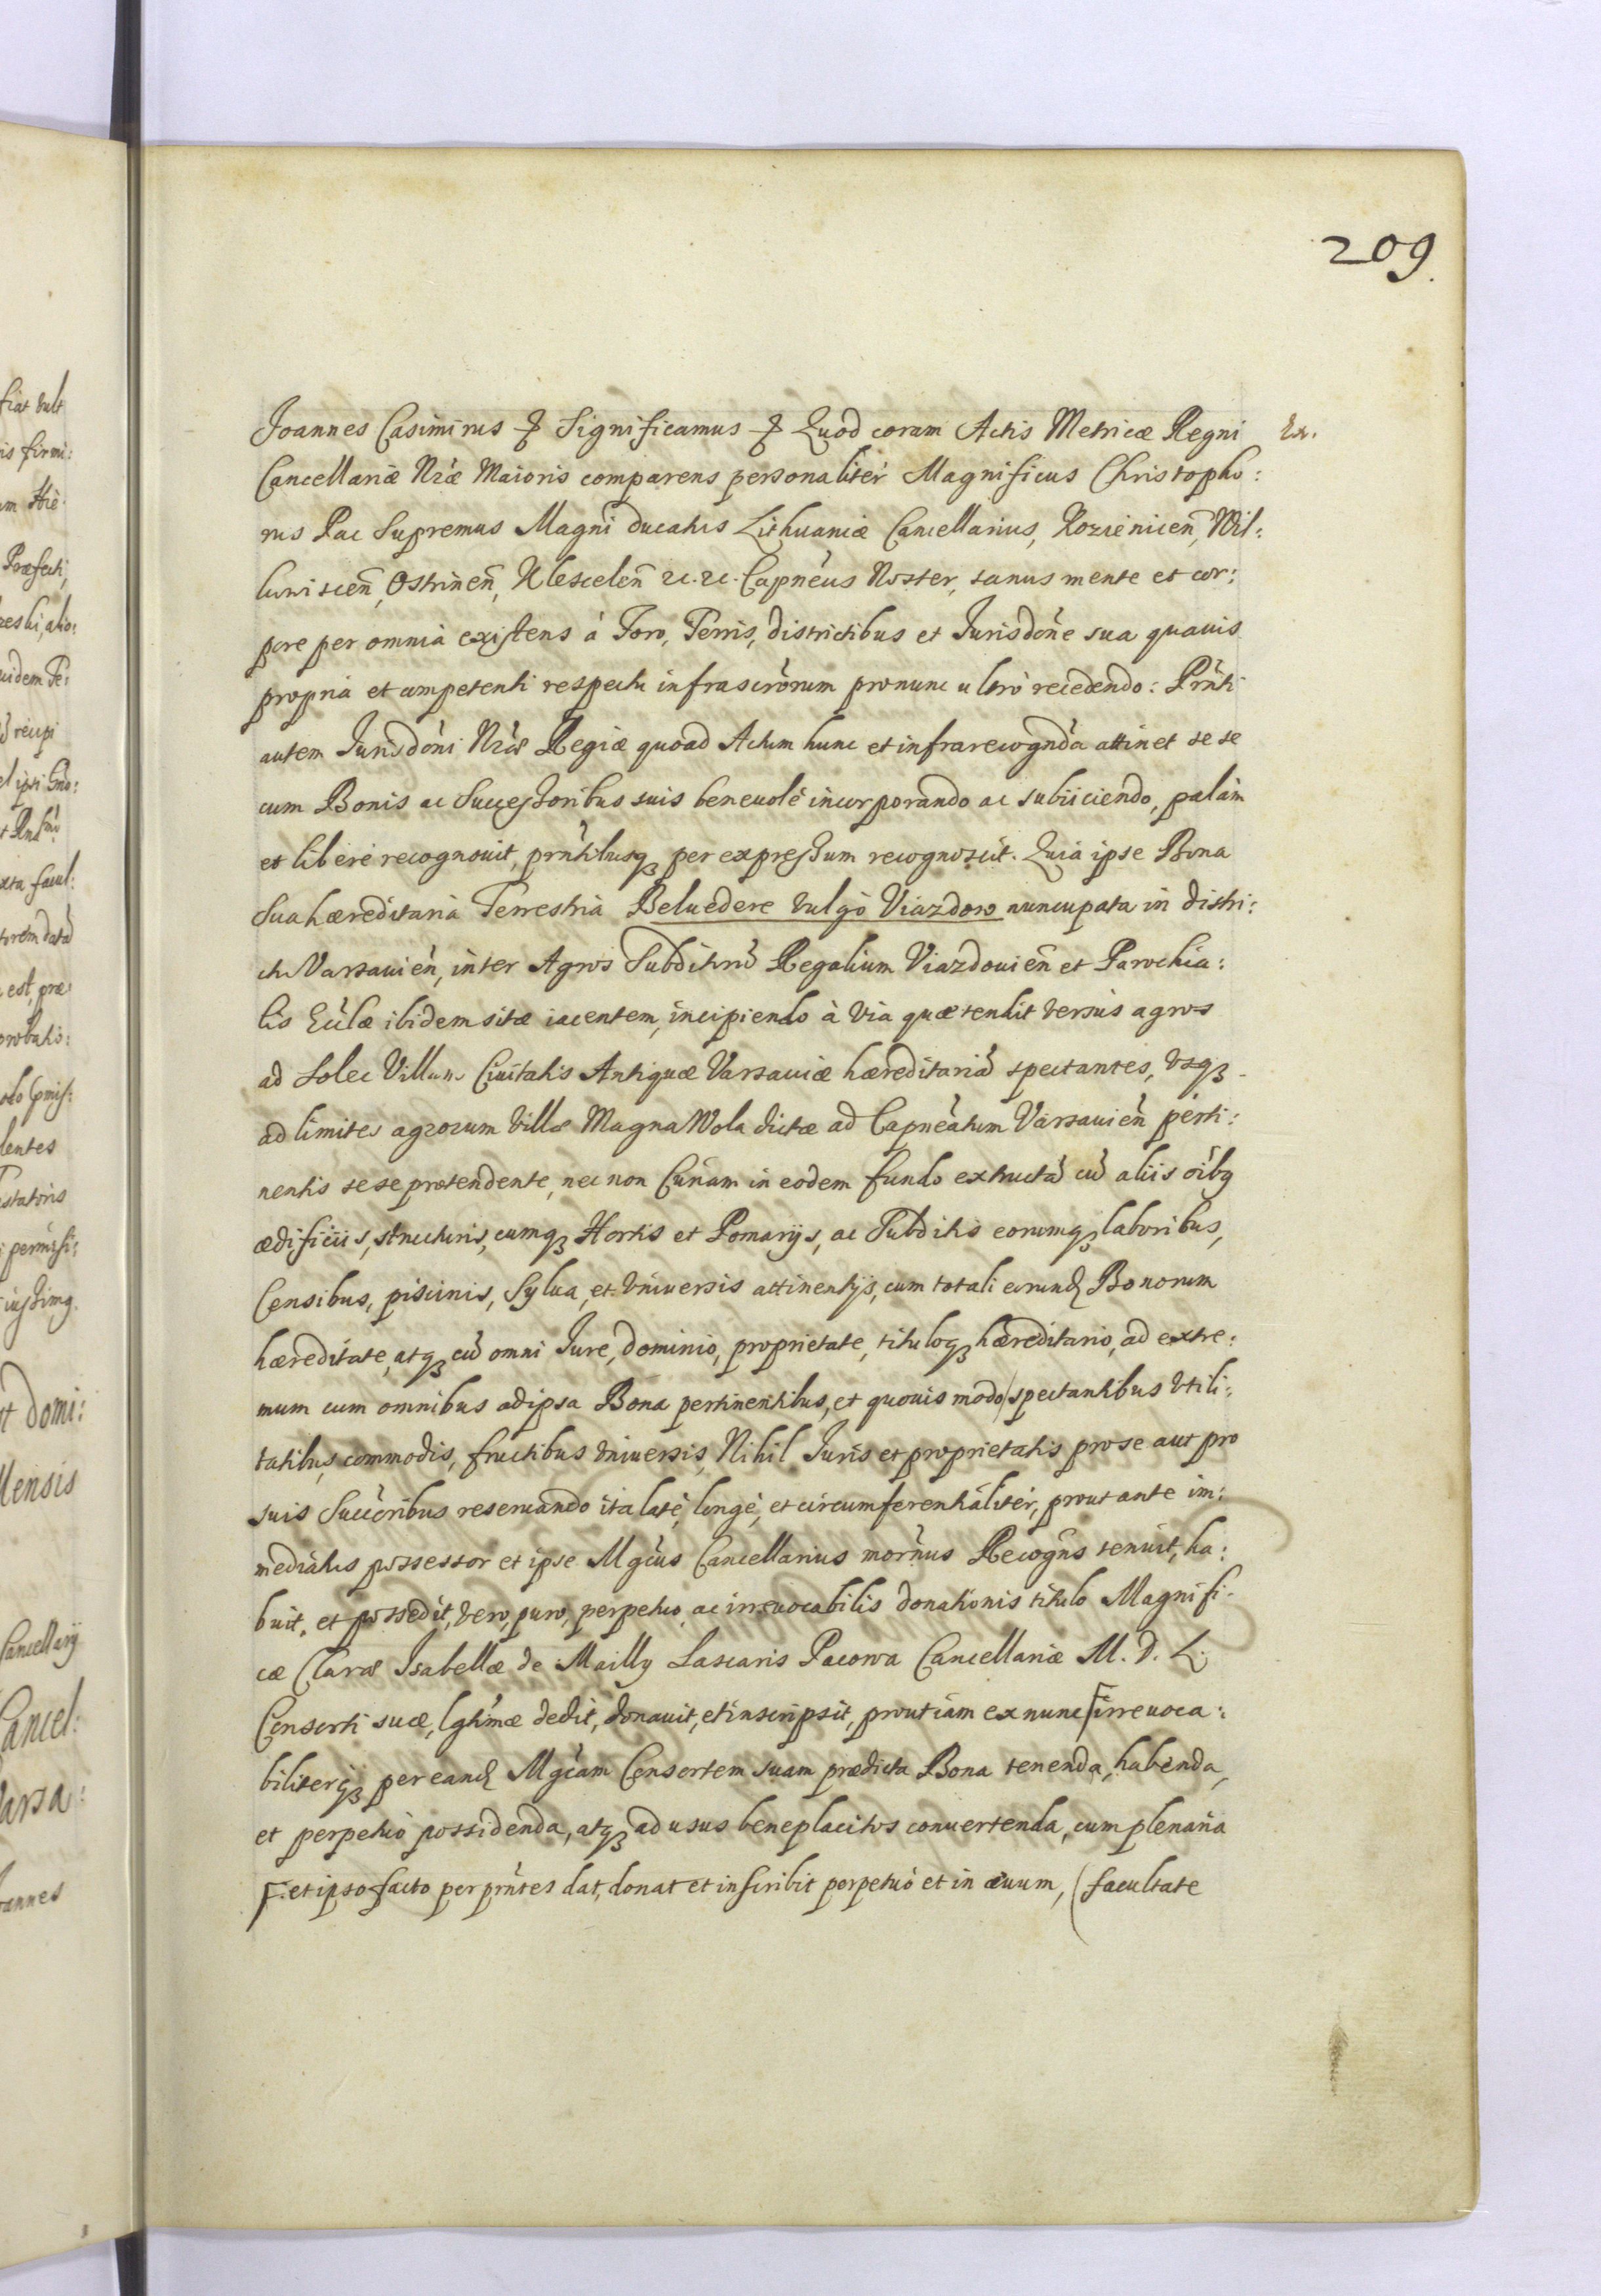 209.
Joannes Casimirus Significamus Quod coram Actis Metricæ Regni Ex.
Cancellariæ Nræ Maioris comparens personaliter Magnificus Christopho:
rus Pac Supremus Magni ducatus Lithuaniæ Cancellarius, Kozienicen̄, Wil:
kuviscen̄, Ostrinen̄, Klescelen̄ &c. &c. Capneus Noster, sanus mente et cor:
pore per omnia existens á Foro, Terris, districtibus et Jurisdoñe sua quauis
propria et competenti respectu infrascrorum pronunc ultrò recedendo: Prñti
autem Jurisdoñi Nræ Regiæ quoad Actum hunc et infrarecognda attinet sese
cum Bonis ac Successoribus suis beneuolè incorporando ac subiiciendo, palàm
et liberè recognouit, prñtibusq3 per expressum recognoscit. Quia ipse Bona
Sua hæreditaria Terrestria Beluedere vulgò Viazdow nuncupata in distri:
ctu Varsauien̄, inter Agros Subditorū Regalium Viazdouien̄ et Parochia:
lis Ecclæ ibidem sitæ iacentem, incipiendo à via quæ tendit versùs agros
ad Solec Villam Ciuitatis Antiquæ Varsauiæ hæreditariā spectantes, vsq3
ad limites agrorum villæ Magna Wola dictæ ad Capneatum Varsauien̄ perti:
nentis sese protendente, nec non Curiam in eodem fundo extructā cū aliis oībq
ædificiis, structuris, cumq3 Hortis et Pomarijs, ac Subditis eorumq3 laboribus,
Censibus, piscinis, Sylua, et vniuersis attinentijs, cum totali eorund Bonorum
hæreditate, atq3 cū omni Jure, dominio, proprietate, tituloq3 hæreditario, ad extre:
mum cum omnibus ad ipsa Bona pertinentibus, et quouis modo spectantibus vtili:
tatibus, commodis, fructibus vniuersis, Nihil Juris et proprietatis pro se aut pro
suis Succoribus reseruando ita latè, longè, et circumferentialiter, prout ante im:
mediatus possessor et ipse Mgcus Cancellarius mornus Recogns tenuit, ha:
buit, et possedit, vero, puro, perpetuo, ac irreuocabilis donationis titulo Magnifi:
cæ Claræ Isabellæ de Mailly Lascaris Pacowa Cancellariæ M. D. L.
Consorti suæ, Lgtimæ dedit, donauit, et inscripsit, prout iam ex nunc irreuoca:
biliterq3 per eand Mgcam Consortem suam prædicta Bona tenenda, habenda,
et perpetuò possidenda, atq3 ad usus beneplacitos conuertenda, cum plenaria
F. et ipso facto per prñtes dat, donat et inscribit perpetuò et in æuum, (facultate